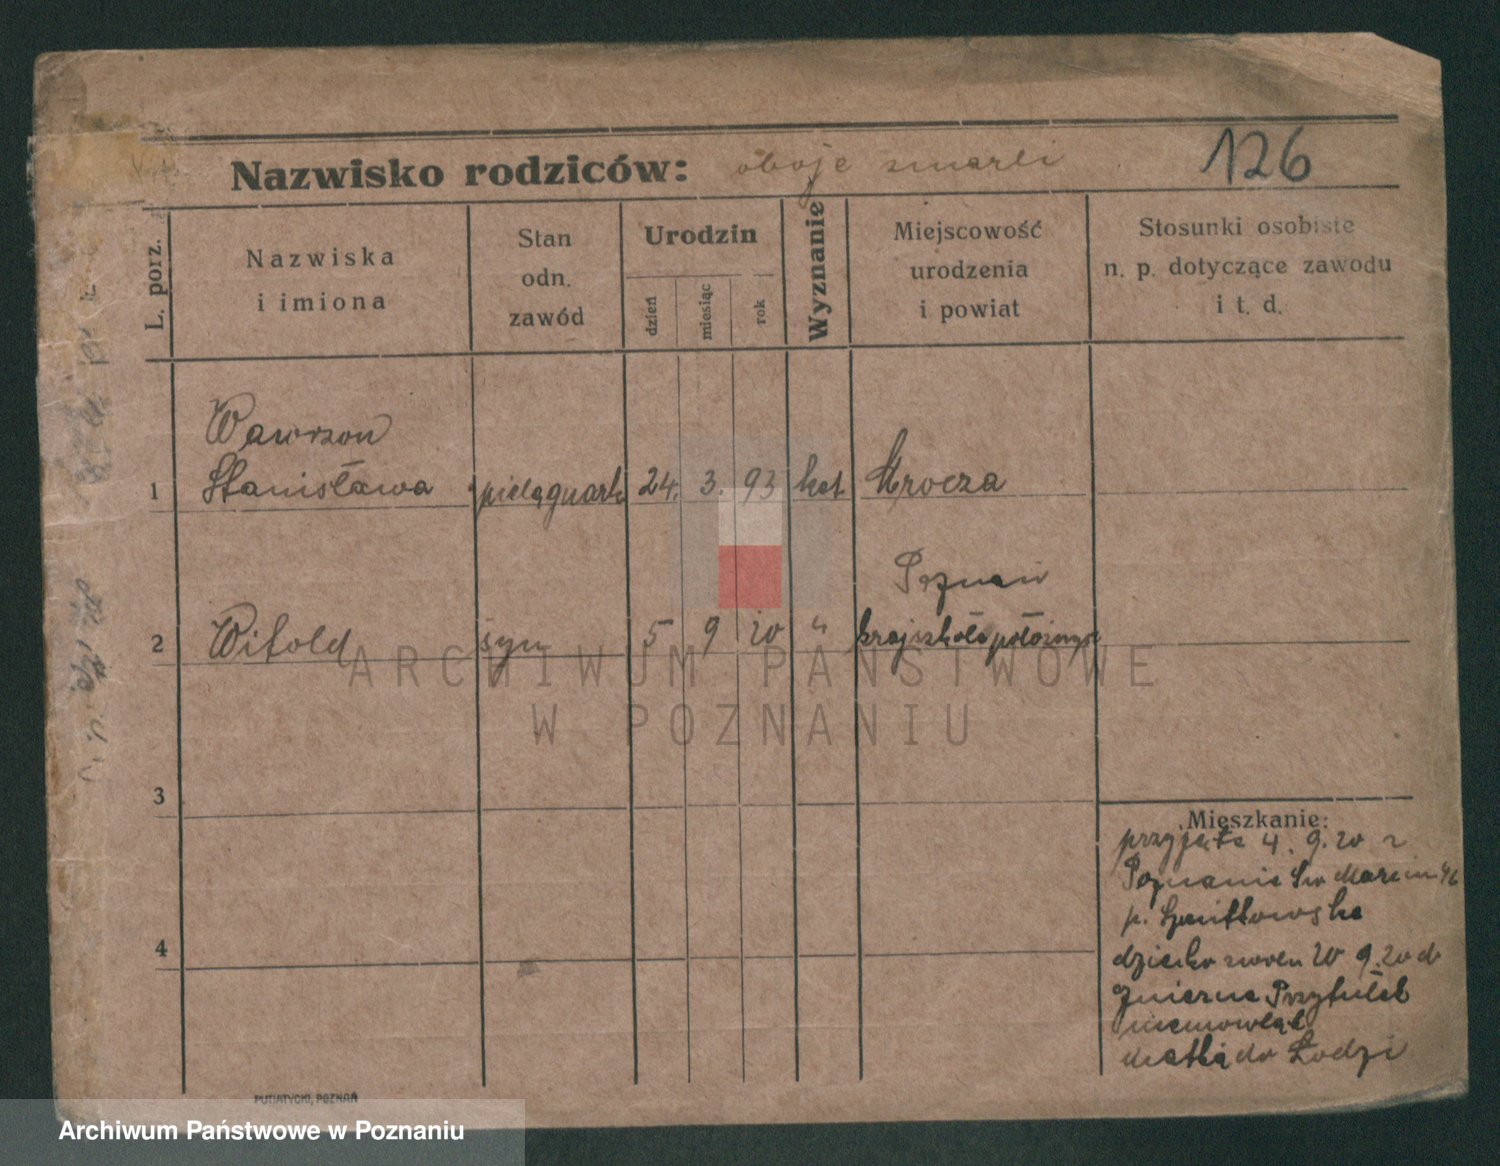 Nazwisko rodziców: oboje zmarli 126
L. porz.
Nazwiska
i imiona
Stan
odn.
zawód
Urodzin
dzień
miesiąc
rok
Wyznanie
Miejscowość
urodzenia
i powiat
Stosunki osobiste
n. p. dotyczące zawodu
i t. d.
Wawrzon
1 Stanisława pielęgniark 24. 3. 93 kat Mrocza
Poznań
2 Witold syn 5 9 20 " położnych
3
4
Mieszkanie:
przyjęta 4. 9. 20 z
Poznania Św Marcin 46
p.
dziecko 20 9. 20 do
Przytułek
niemowląt
matka do Łodzi
ARCHIWUM PAŃSTWOWE
W POZNANIU
PUTIATYCKI, POZNAŃ
Archiwum Państwowe w Poznaniu